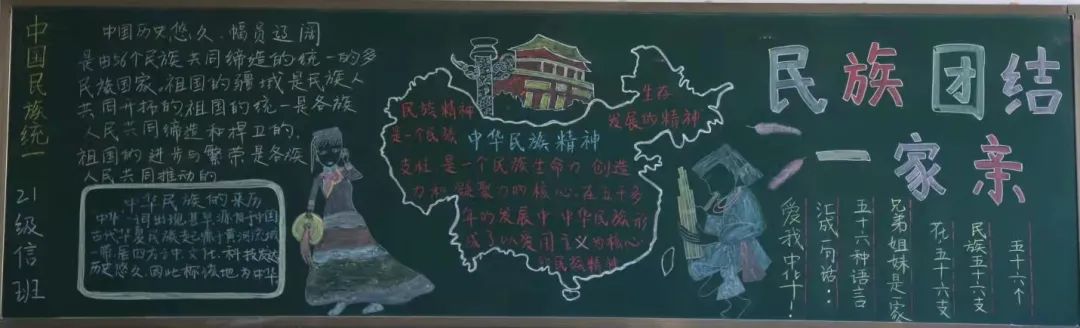 中国民族统一
21级信班
中国历史悠久、幅员辽阔
是由56个民族共同缔造的统一的多
民族国家,祖国的疆域是民族人
共同开拓的祖国的统一是各族
人民共同缔造和捍卫的,
祖国的进步与繁荣是各族
人民共同推动的
中华民族的来历
中华一词出现甚早,源有中国
古代华夏民族起源于黄河流域
一带居四方之中,文化、科技发达
历史悠久,因此称该地为中华
民族精神
是一个民族
生存
发展的精神
中华民族精神
支柱是一个民族生命力 创造
力和凝聚力的核心.在五千多
年的发展中 中华民族形
成了以爱国主义为核心
民族精神
民族团结
一家亲
五十六个
民族五十六支
花五十六支
兄弟姐妹是一家
五十六种语言
汇成一句话:
爱我中华!